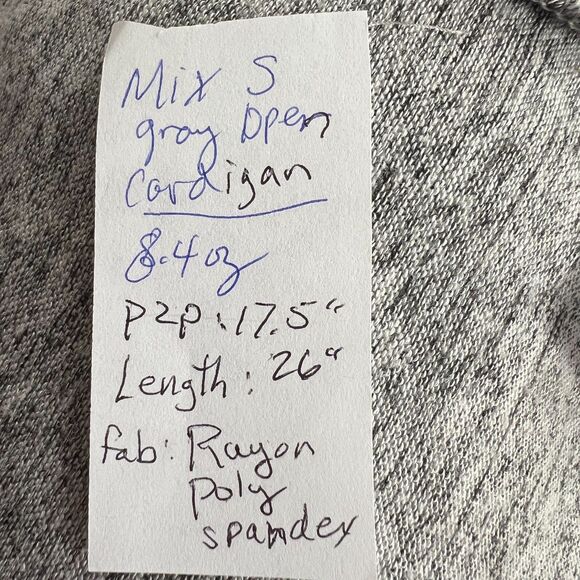 Mix S
gray Open
Cardigan
8.4 oz
P2P: 17.5"
Length: 26"
fab: Rayon
poly
spandex